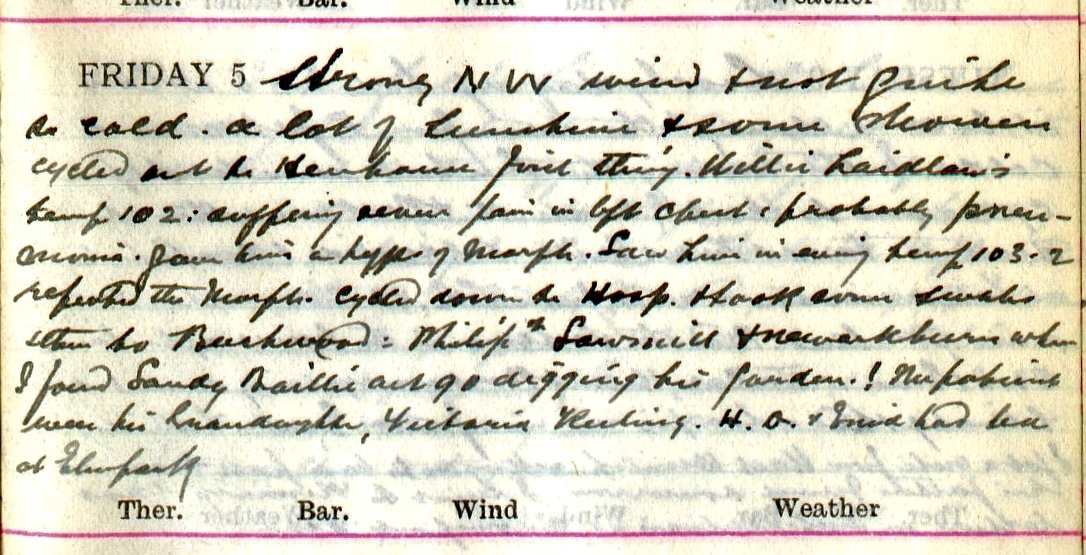 Ther. Bar. Wind Weather
FRIDAY 5 Strong N W wind & not quite
so cold. a lot of sunshine & some showers
cycled out to Henhouse first thing. Willie Laidlaw's
temp 102: suffering severe pain in left chest: probably pneu-
monia. gave him a hypo of Morph. Saw him in evening temp 103.2
repeated the Morph. cycled down to Hosp. & took some swabs
then to Bushwood: Philip Sawmill & Newarkburn where
I found Sandy Baillie act 90 digging his garden.! The patient
was his Grandaughter, Victoria. H. D. & Enid had tea
at Elmpark
Ther. Bar. Wind Weather